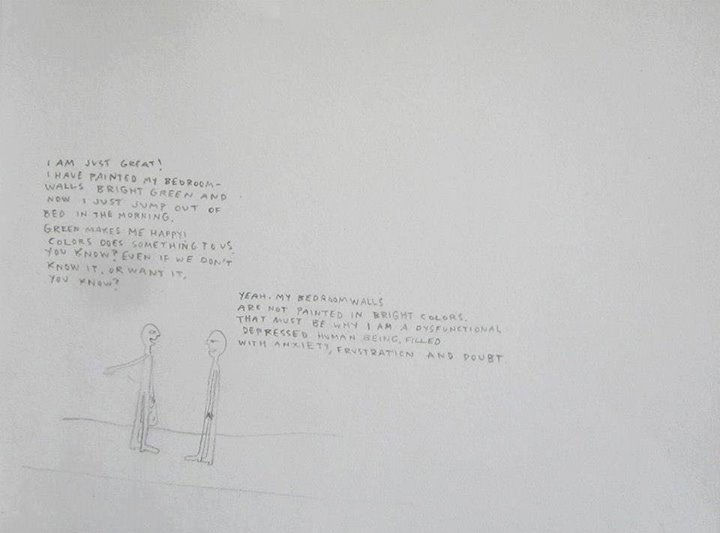 I AM JUST GREAT!
I HAVE PAINTED MY BEDROOM-
WALLS BRIGHT GREEN AND
NOW I JUST JUMP OUT OF
BED IN THE MORNING.
GREEN MAKES ME HAPPY!
COLORS DOES SOMETHING TO US,
YOU KNOW? EVEN IF WE DON'T
KNOW IT, OR WANT IT,
YOU KNOW?
YEAH. MY BEDROOM WALLS
ARE NOT PAINTED IN BRIGHT COLORS.
THAT MUST BE WHY I AM A DYSFUNCTIONAL
DEPRESSED HUMAN BEING, FILLED
WITH ANXIETY, FRUSTRATION AND DOUBT